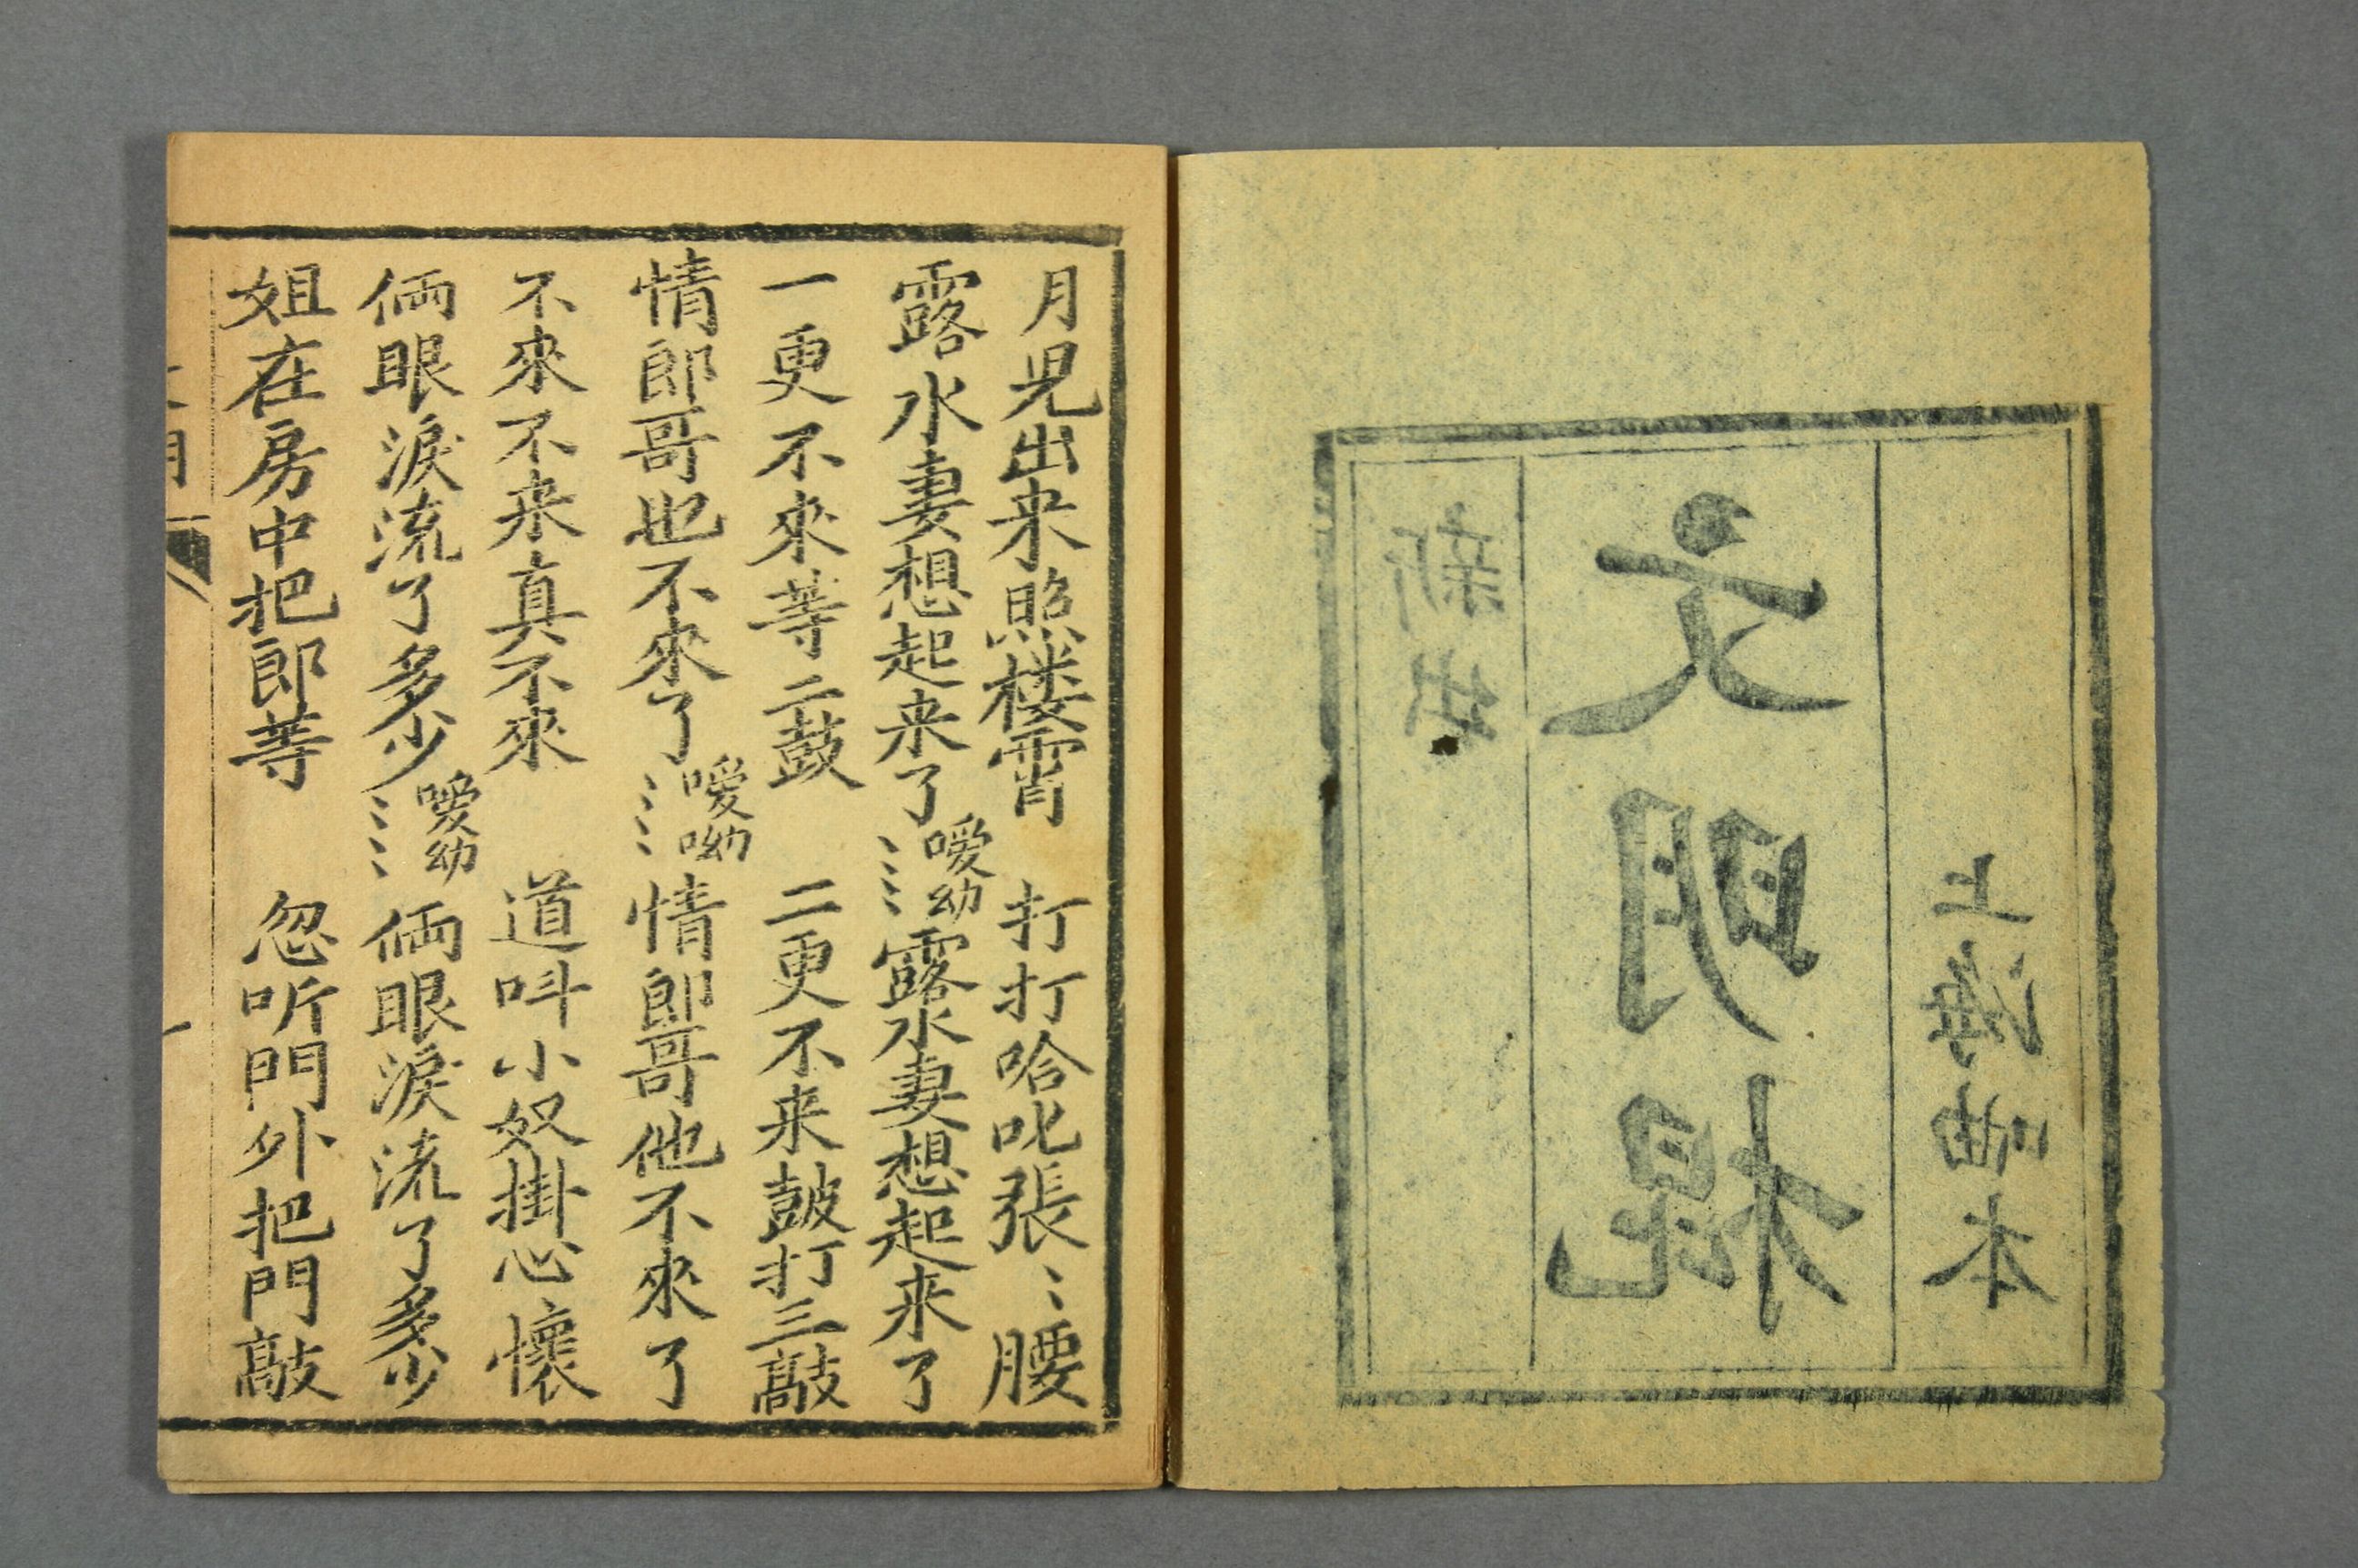 新出
文明棍
上海本
月児出来照楼霄 打打哈叱張〻腰
露水妻想起来了噯幼〻〻露水妻想起来了
一更不來等二鼓 二更不来皷打三敲
情郎哥也不來了噯呦〻〻情郎哥他不來了
不來不来真不來 道呌小奴掛心懷
倆眼淚流了多少噯幼〻〻倆眼淚流了多少
姐在房中把郎等 忽听門外把門敲